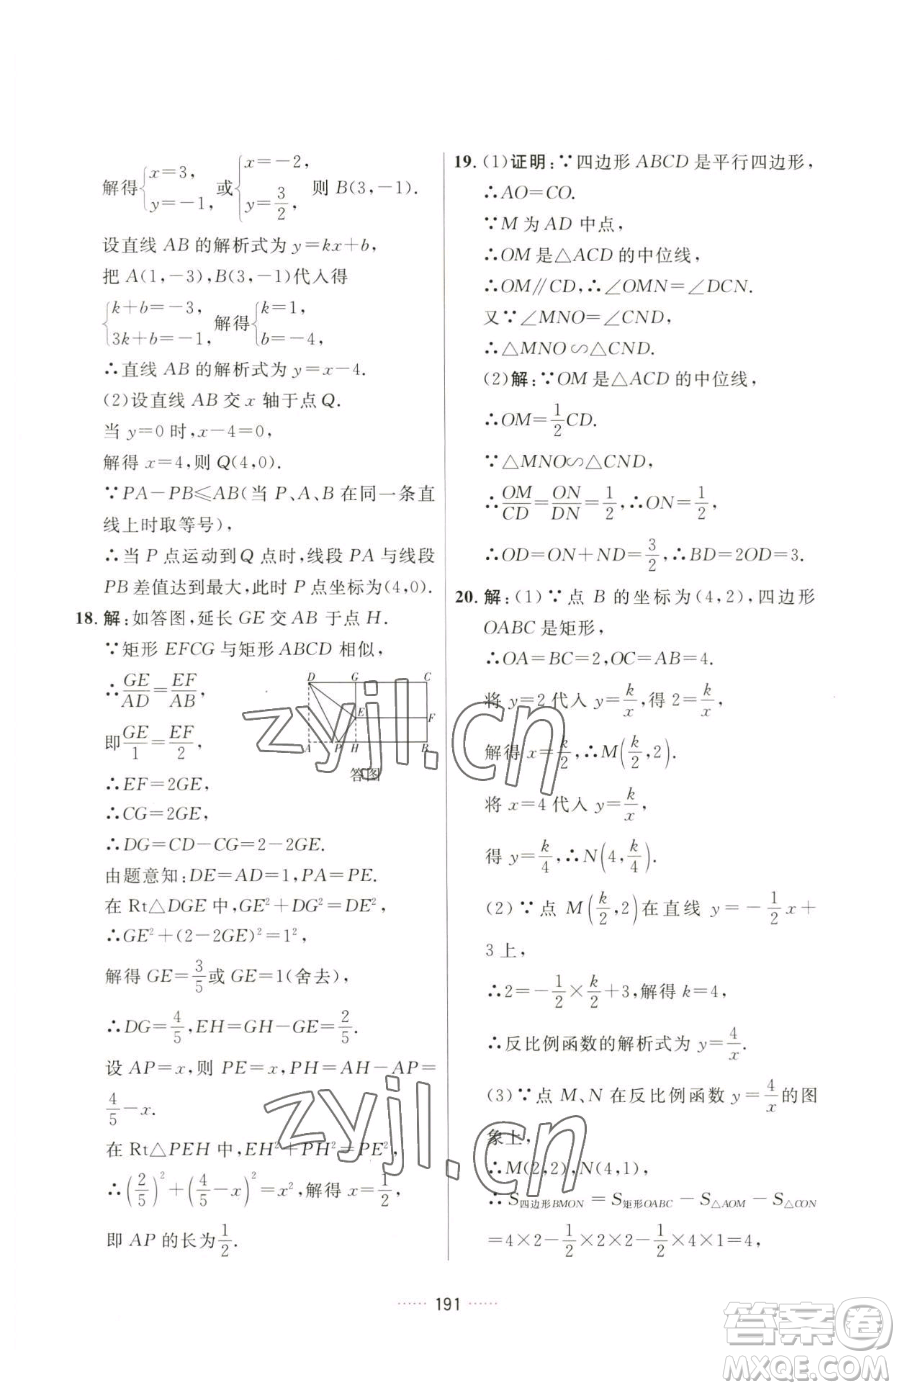 解得{x=3, y=-1, 或{x=-2, y=3/2, 则 B(3,-1).
设直线 AB 的解析式为 y=kx+b,
把 A(1,-3),B(3,-1)代入得
{k+b=-3, 3k+b=-1, 解得{k=1, b=-4,
∴直线 AB 的解析式为 y=x-4.
(2)设直线 AB 交 x 轴于点 Q.
当 y=0 时,x-4=0,
解得 x=4,则 Q(4,0).
∵PA-PB≤AB(当 P、A、B 在同一条直
线上时取等号),
∴当 P 点运动到 Q 点时,线段 PA 与线段
PB 差值达到最大,此时 P 点坐标为(4,0).
18. 解:如答图,延长 GE 交 AB 于点 H.
∵矩形 EFCG 与矩形 ABCD 相似,
∴GE/AD=EF/AB,
即GE/1=EF/2,
D G C
E F
A P H B
答图
∴EF=2GE,
∴CG=2GE,
∴DG=CD-CG=2-2GE.
由题意知:DE=AD=1,PA=PE.
在 Rt△DGE 中,GE²+DG²=DE²,
∴GE²+(2-2GE)²=1²,
解得 GE=3/5或 GE=1(舍去),
∴DG=4/5,EH=GH-GE=2/5.
设 AP=x,则 PE=x,PH=AH-AP=
4/5-x.
在 Rt△PEH 中,EH²+PH²=PE²,
∴(2/5)²+(4/5-x)²=x²,解得 x=1/2,
即 AP 的长为1/2.
19. (1)证明:∵四边形 ABCD 是平行四边形,
∴AO=CO.
∵M 为 AD 中点,
∴OM 是△ACD 的中位线,
∴OM∥CD,∴∠OMN=∠DCN.
又∵∠MNO=∠CND,
∴△MNO∽△CND.
(2)解:∵OM 是△ACD 的中位线,
∴OM=1/2CD.
∵△MNO∽△CND,
∴OM/CD=ON/DN=1/2,∴ON=1/2,
∴OD=ON+ND=3/2,∴BD=2OD=3.
20. 解:(1)∵点 B 的坐标为(4,2),四边形
OABC 是矩形,
∴OA=BC=2,OC=AB=4.
将 y=2 代入 y=k/x,得 2=k/x,
解得 x=k/2,∴M(k/2,2).
将 x=4 代入 y=k/x,
得 y=k/4,∴N(4,k/4).
(2)∵点 M(k/2,2)在直线 y=-1/2x+
3 上,
∴2=-1/2×k/2+3,解得 k=4,
∴反比例函数的解析式为 y=4/x.
(3)∵点 M、N 在反比例函数 y=4/x的图
象上,
∴M(2,2),N(4,1),
∴S四边形BMON=S矩形OABC-S△AOM-S△CON
=4×2-1/2×2×2-1/2×4×1=4,
······ 191 ······
zyjl.cn
zyjl.cn
答案圈
MXQE.COM